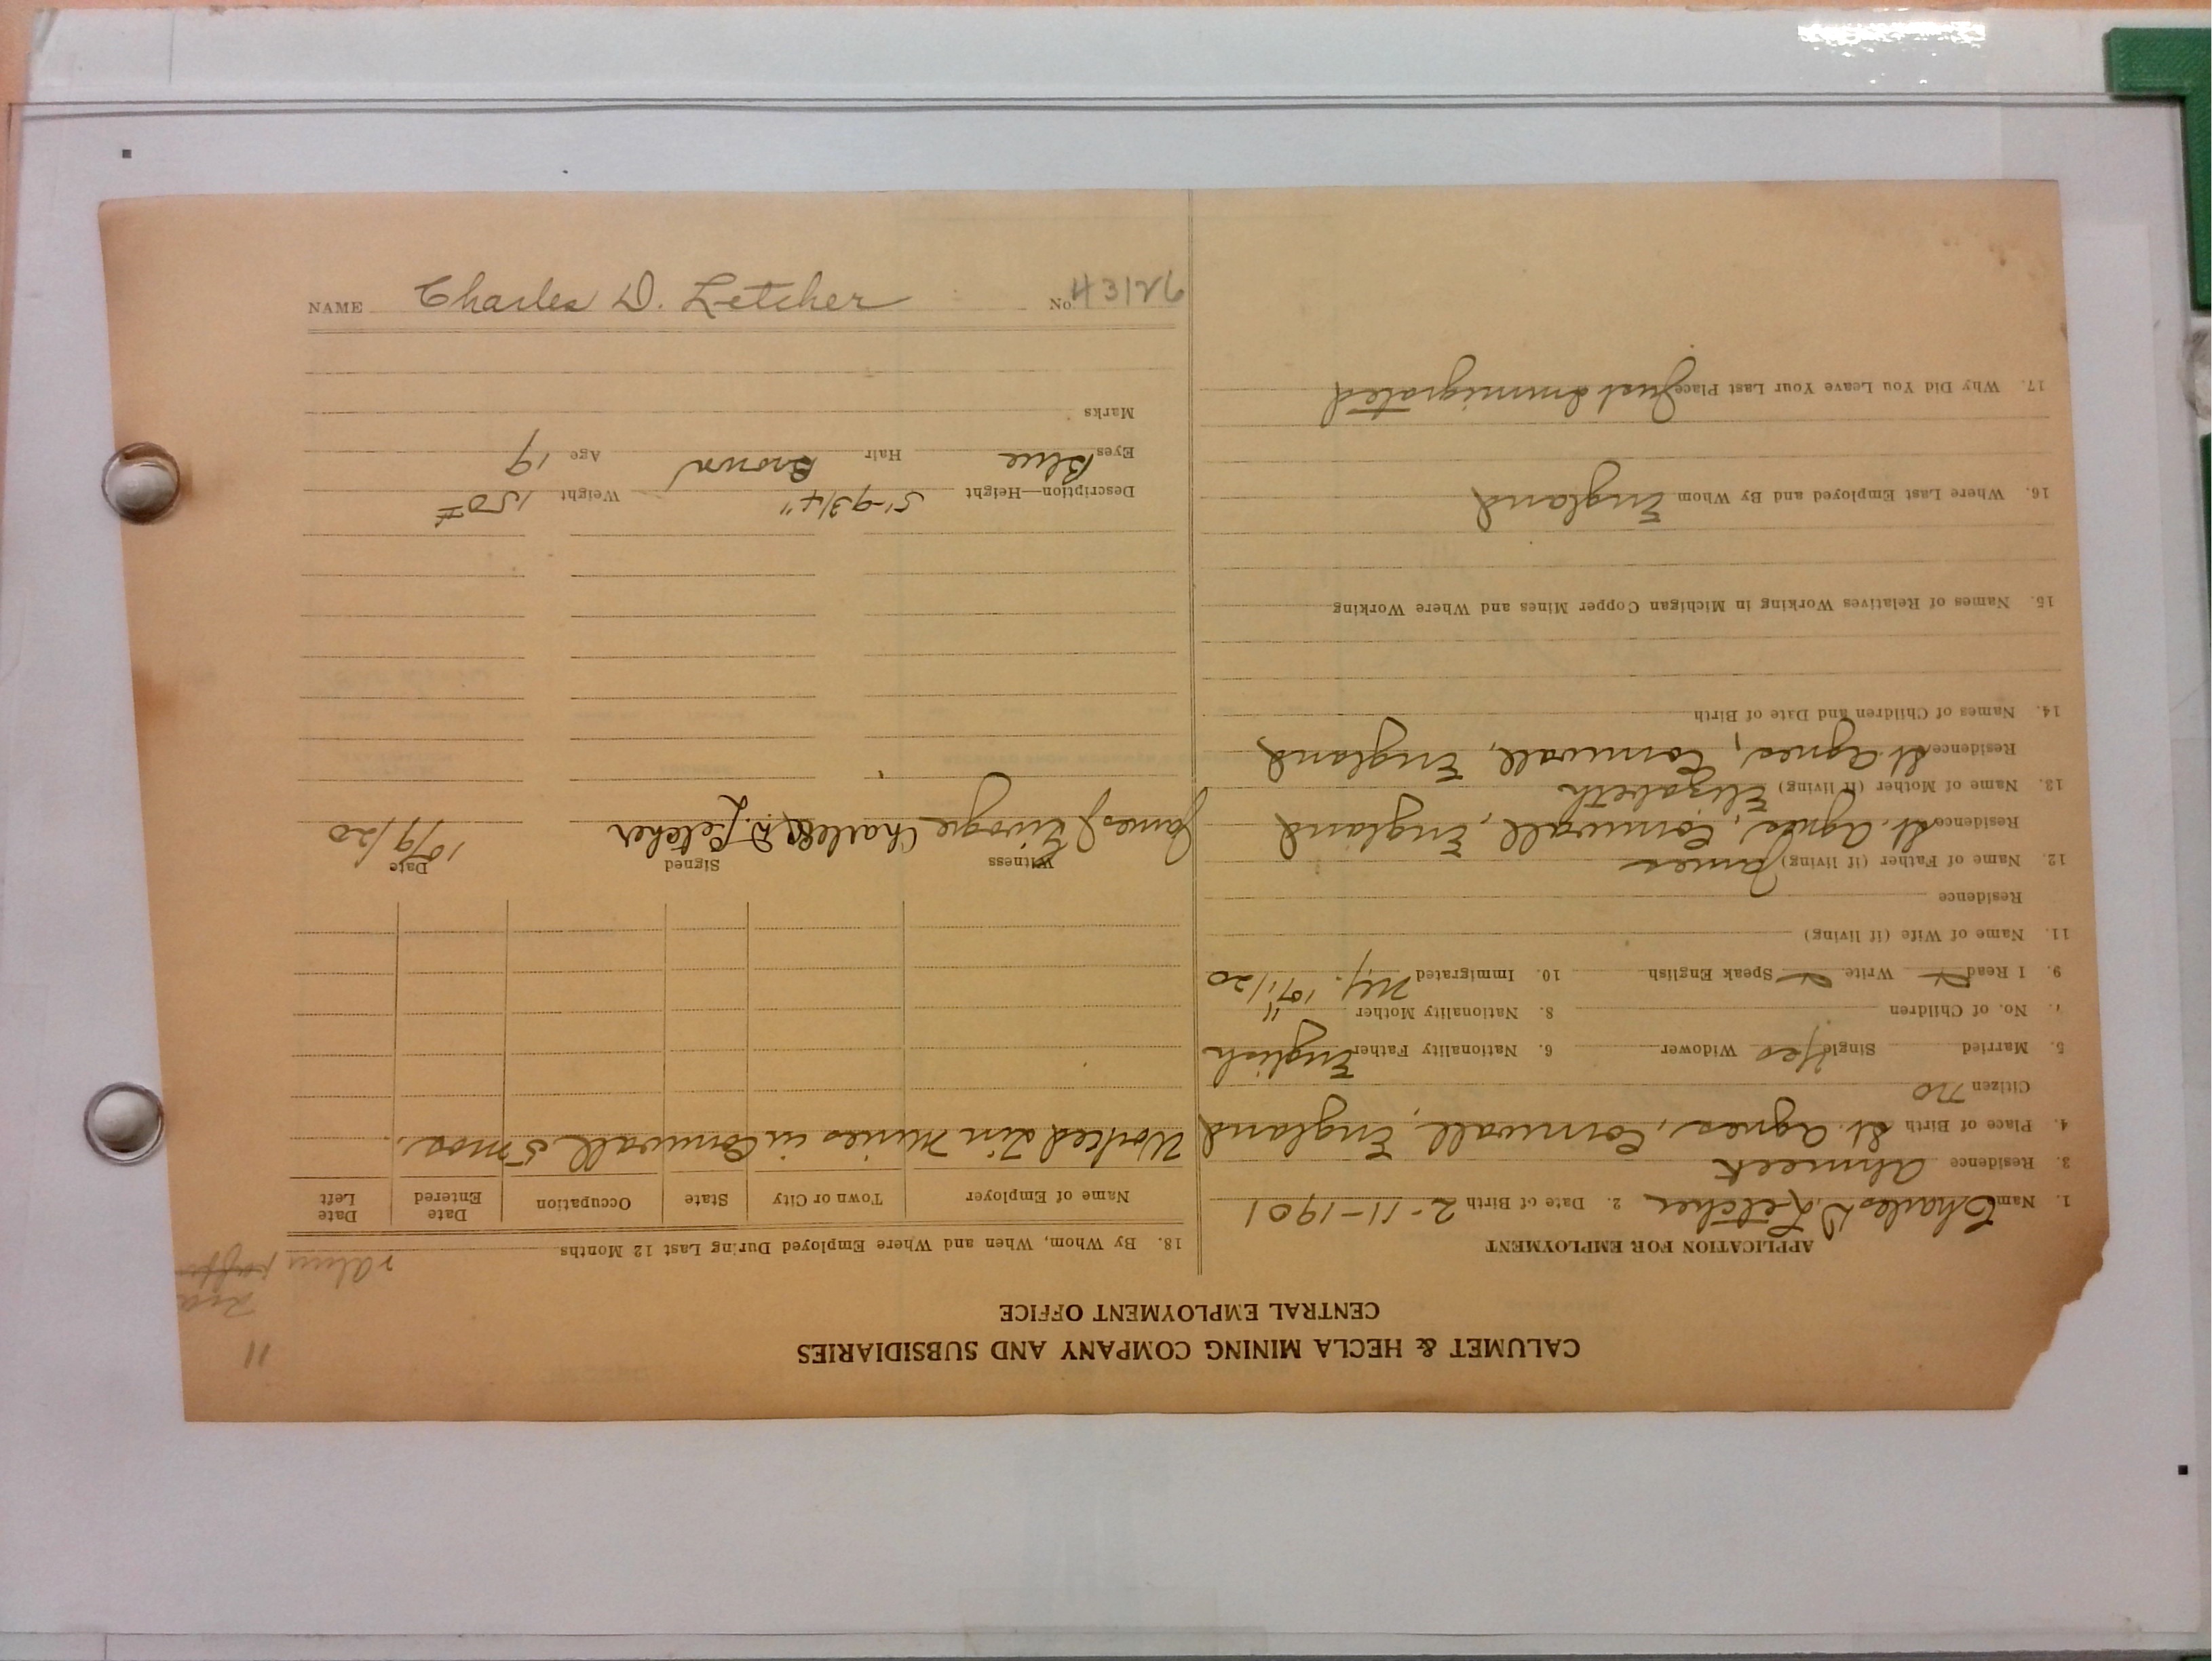 CALUMET & HECLA MINING COMPANY AND SUBSIDIARIES
CENTRAL EMPLOYMENT OFFICE
11
APPLICATION FOR EMPLOYMENT
1. Name Charles D. Letcher 2. Date of Birth 2-11-1901
3. Residence Ahmeek
4. Place of Birth St. Agnes, Cornwall, England
Citizen no
5. Married Single Yes Widower 6. Nationality Father English
7. No. of Children 8. Nationality Mother "
9. I Read Write Speak English 10. Immigrated N.Y. 10/1/20
11. Name of Wife (if living)
Residence
12. Name of Father (if living) James
Residence St. Agnes, Cornwall, England
13. Name of Mother (if living) Elizabeth
Residence St. Agnes, Cornwall, England
14. Names of Children and Date of Birth
15. Names of Relatives Working in Michigan Copper Mines and Where Working
16. Where Last Employed and By Whom England
17. Why Did You Leave Your Last Place Just Immigrated
18. By Whom, When and Where Employed During Last 12 Months
Name of Employer Town or City State Occupation Date Entered Date Left
Worked Tin Mines in Cornwall 5 mos.
Witness Signed Date
James J Charles D. Letcher 10/9/20
Description—Height 5'-9 3/4" Weight 150#
Eyes Blue Hair Brown Age 19
Marks
NAME Charles D. Letcher No. 43126